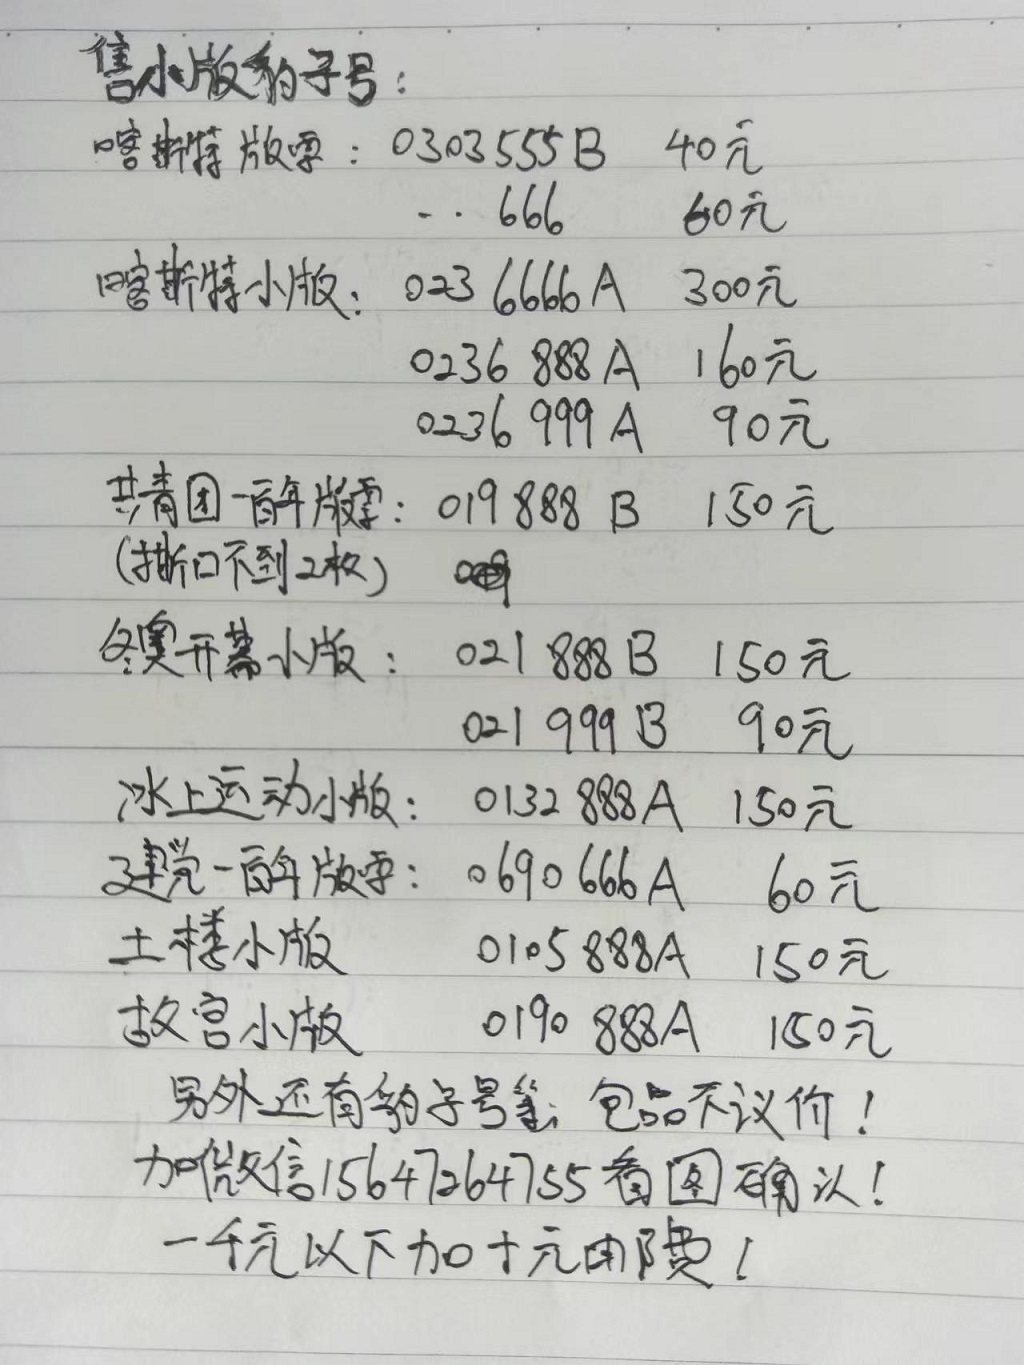 售小版豹子号：
喀斯特版票：0303555B 40元
.. 666 60元
喀斯特小版：0236666A 300元
0236888A 160元
0236999A 90元
共青团一百年版票：019888B 150元
(撕口不到2枚)
冬奥开幕小版：021888B 150元
021999B 90元
冰上运动小版：0132888A 150元
建党一百年版票：0690666A 60元
土楼小版 0105888A 150元
故宫小版 0190888A 150元
另外还有豹子号等；包品不议价！
加微信15647264755看图确认！
一千元以下加十元邮费！